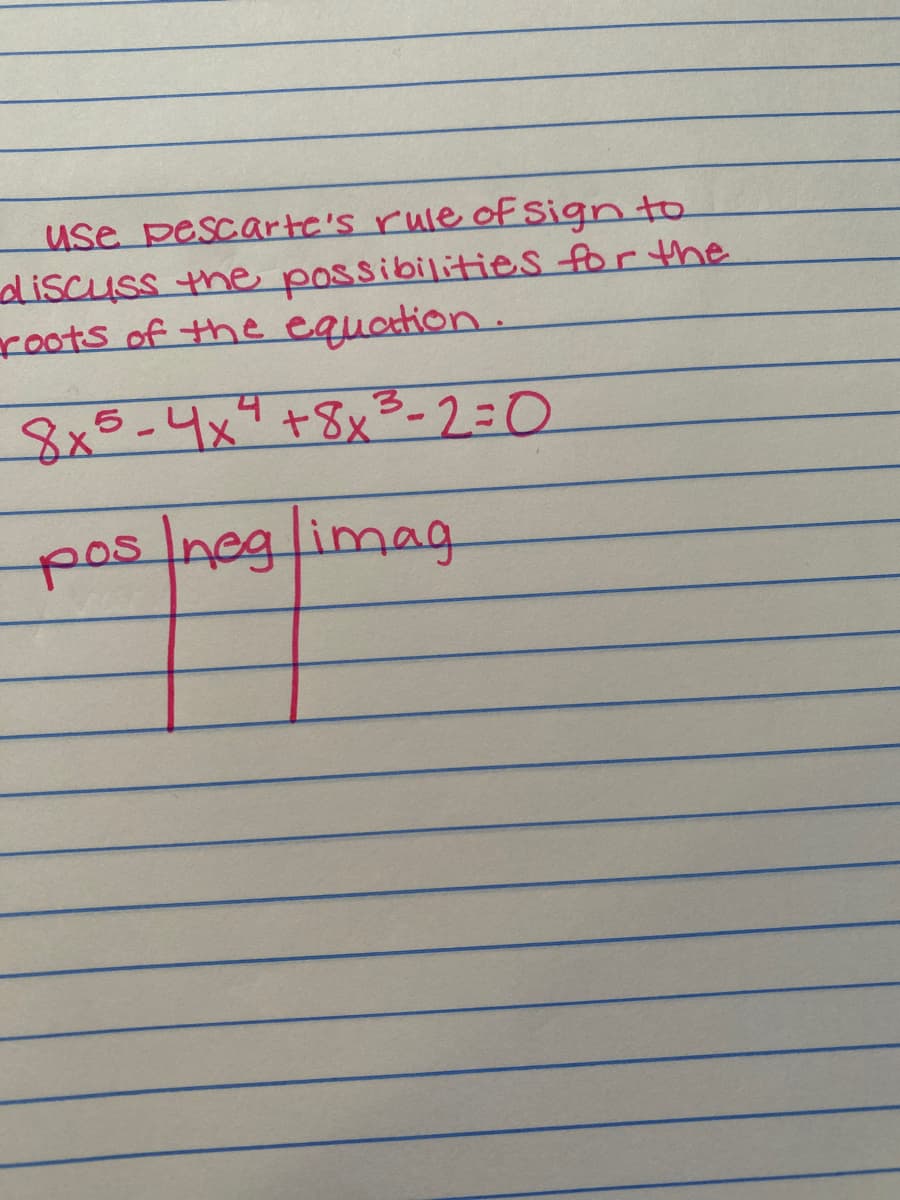 use Descarte's rule of sign to
discuss the possibilities for the
roots of the equation.
8x⁵-4x⁴+8x³-2=0
pos|neg|imag